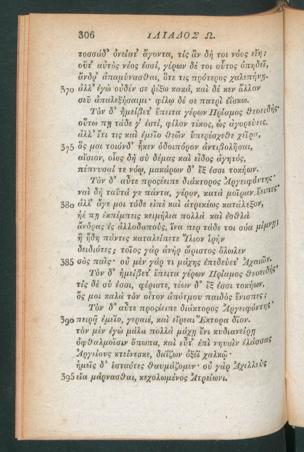 306 ΙΛΙΑΔΟΣ Ω.
τοσσάδ᾽ ὀνείατ᾽ ἄγοντα, τίς ἂν δή τοι νόος εἴη;
οὔτ᾽ αὐτὸς νέος ἐσσὶ, γέρων δέ τοι οὗτος ὀπηδεῖ,
ἄνδρ᾽ ἀπαμύνασθαι, ὅτε τις πρότερος χαλεπήνῃ.
370 ἀλλ᾽ ἐγὼ οὐδέν σε ῥέξω κακὰ, καὶ δέ κεν ἄλλον
σεῦ ἀπαλεξήσαιμι· φίλῳ δέ σε πατρὶ ἐΐσκω.
Τὸν δ᾽ ἠμείβετ᾽ ἔπειτα γέρων Πρίαμος θεοειδής·
οὕτω πη τάδε γ᾽ ἐστὶ, φίλον τέκος, ὡς ἀγορεύεις.
ἀλλ᾽ ἔτι τις καὶ ἐμεῖο θεῶν ὑπερέσχεθε χεῖρα,
375 ὅς μοι τοιόνδ᾽ ἧκεν ὁδοιπόρον ἀντιβολῆσαι,
αἴσιον, οἷος δὴ σὺ δέμας καὶ εἶδος ἀγητὸς,
πέπνυσαί τε νόῳ, μακάρων δ᾽ ἔξ ἐσσι τοκήων.
Τὸν δ᾽ αὖτε προσέειπε διάκτορος Ἀργειφόντης·
ναὶ δὴ ταῦτά γε πάντα, γέρον, κατὰ μοῖραν ἔειπες·
380 ἀλλ᾽ ἄγε μοι τόδε εἰπὲ καὶ ἀτρεκέως κατάλεξον,
ἠέ πη ἐκπέμπεις κειμήλια πολλὰ καὶ ἐσθλὰ
ἄνδρας ἐς ἀλλοδαποὺς, ἵνα περ τάδε τοι σόα μίμνῃ·
ἢ ἤδη πάντες καταλείπετε Ἴλιον ἱρὴν
δειδιότες; τοῖος γὰρ ἀνὴρ ὤριστος ὄλωλεν
385 σὸς παῖς· οὐ μὲν γάρ τι μάχης ἐπιδεύετ᾽ Ἀχαιῶν.
Τὸν δ᾽ ἠμείβετ᾽ ἔπειτα γέρων Πρίαμος θεοειδής·
τίς δὲ σύ ἐσσι, φέριστε, τέων δ᾽ ἔξ ἐσσι τοκήων,
ὅς μοι καλὰ τὸν οἶτον ἀπότμου παιδὸς ἔνισπες;
Τὸν δ᾽ αὖτε προσέειπε διάκτορος Ἀργειφόντης·
390 πειρᾷ ἐμεῖο, γεραιὲ, καὶ εἴρεαι Ἕκτορα δῖον.
τὸν μὲν ἐγὼ μάλα πολλὰ μάχῃ ἔνι κυδιανείρῃ
ὀφθαλμοῖσιν ὄπωπα, καὶ εὖτ᾽ ἐπὶ νηυσὶν ἐλάσσας
Ἀργείους κτείνεσκε, δαΐζων ὀξέϊ χαλκῷ·
ἡμεῖς δ᾽ ἑσταότες θαυμάζομεν· οὐ γὰρ Ἀχιλλεὺς
395 εἴα μάρνασθαι, κεχολωμένος Ἀτρείωνι.